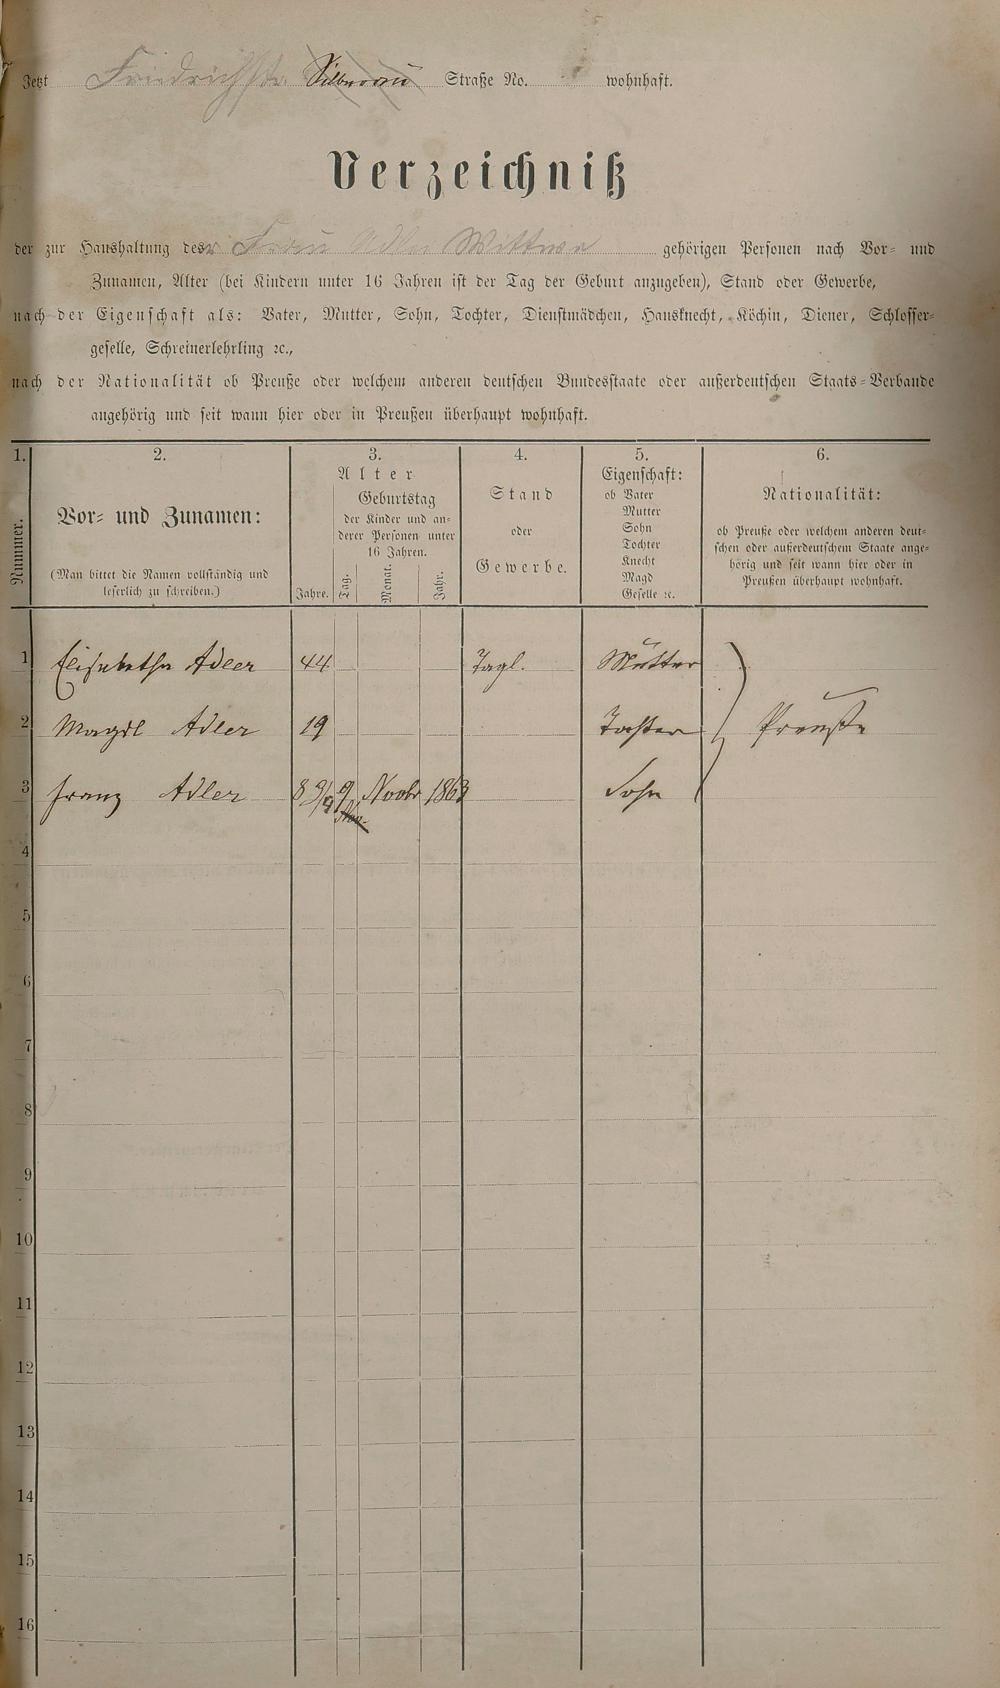 Jetzt Friedrichstr. Straße No. wohnhaft.
Verzeichniß
der zur Haushaltung der Frau Adler Wittwe gehörigen Personen nach Vor- und
Zunamen, Alter (bei Kindern unter 16 Jahren ist der Tag der Geburt anzugeben), Stand oder Gewerbe,
nach der Eigenschaft als: Vater, Mutter, Sohn, Tochter, Dienstmädchen, Hausknecht, Köchin, Diener, Schlosser-
geselle, Schreinerlehrling ꝛc.,
nach der Nationalität ob Preuße oder welchem anderen deutschen Bundesstaate oder außerdeutschen Staats-Verbande
angehörig und seit wann hier oder in Preußen überhaupt wohnhaft.
1. 2. 3. 4. 5. 6.
Nummer.
Vor- und Zunamen:
(Man bittet die Namen vollständig und
leserlich zu schreiben.)
Alter
Geburtstag
der Kinder und an-
derer Personen unter
16 Jahren.
Jahre. Tag. Monat. Jahr.
Stand
oder
Gewerbe.
Eigenschaft:
ob Vater
Mutter
Sohn
Tochter
Knecht
Magd
Geselle ꝛc.
Nationalität:
ob Preuße oder welchem anderen deut-
schen oder außerdeutschem Staate ange-
hörig und seit wann hier oder in
Preußen überhaupt wohnhaft.
1 Elisabetha Adler 44 Tagl. Mutter
2 Magdl Adler 19 Tochter Preuße
3 Franz Adler 8 3/4 9/ Novbr 1863 Sohn
Nov.
4
5
6
7
8
9
10
11
12
13
14
15
16